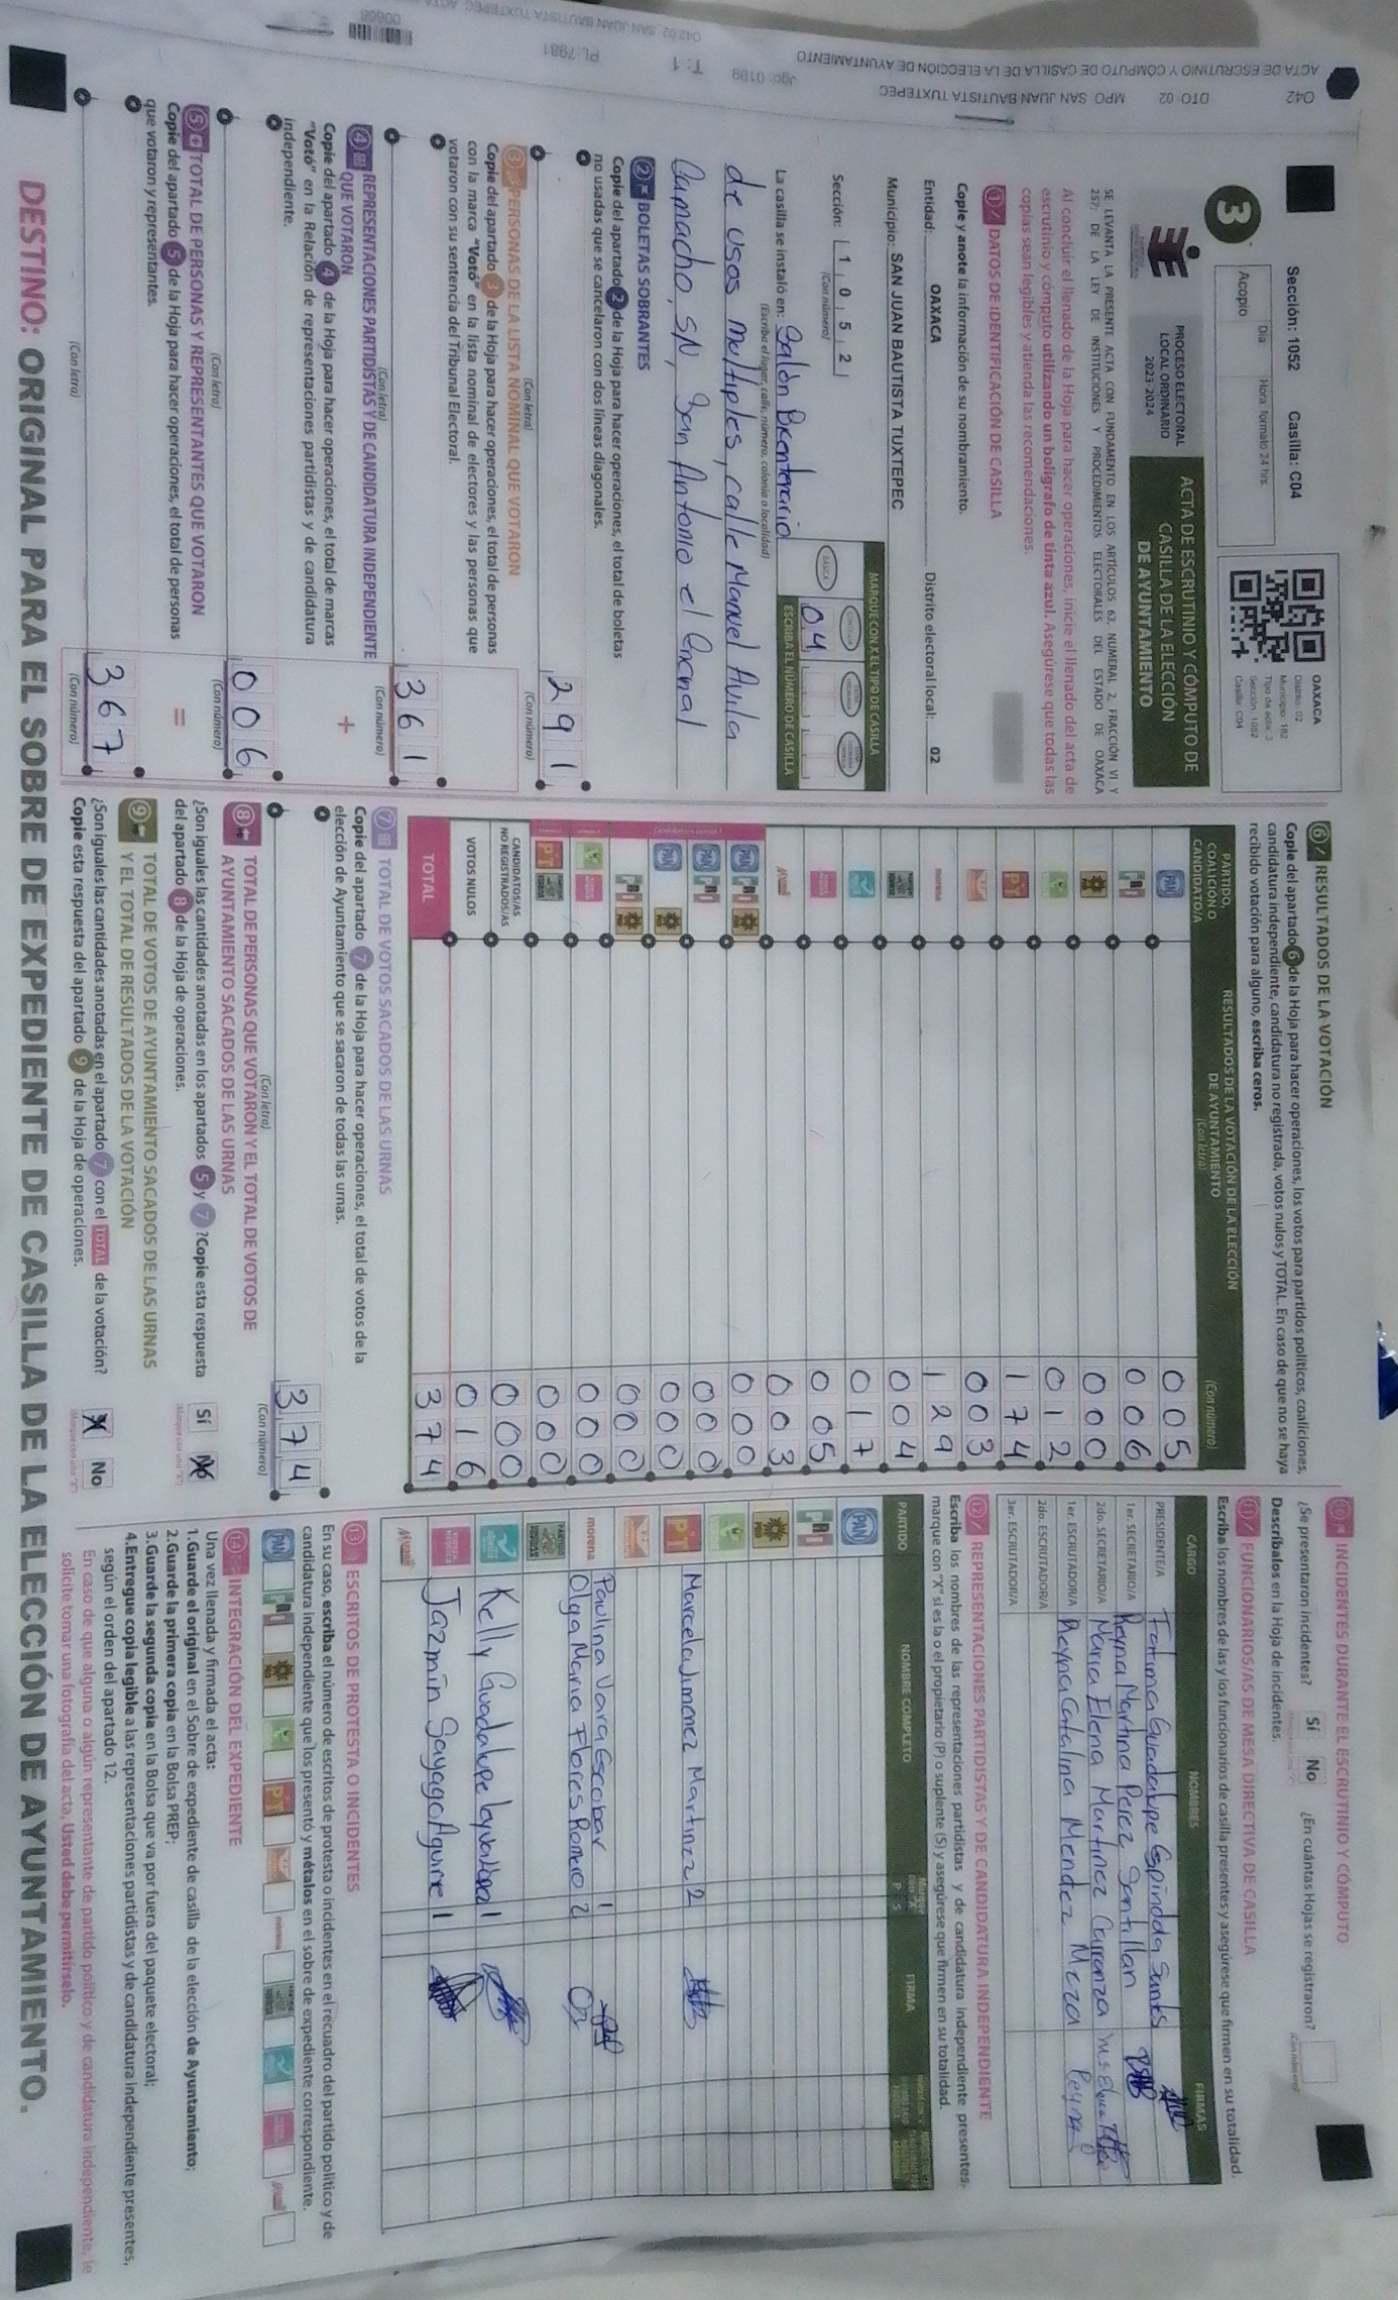 ACTA DE ESCRUTINIO Y CÓMPUTO DE CASILLA DE LA ELECCIÓN DE AYUNTAMIENTO
042 DTO: 02 MPO: SAN JUAN BAUTISTA TUXTEPEC
T: 1
PL: 7981
Sección: 1052 Casilla: C04
Día Hora formato 24 hrs.
Acopio
3
OAXACA
Distrito: 02
Municipio: 182
Tipo de acta: 3
Sección: 1052
Casilla: C04
PROCESO ELECTORAL
LOCAL ORDINARIO
2023-2024
ACTA DE ESCRUTINIO Y CÓMPUTO DE
CASILLA DE LA ELECCIÓN
DE AYUNTAMIENTO
SE LEVANTA LA PRESENTE ACTA CON FUNDAMENTO EN LOS ARTÍCULOS 63, NUMERAL 2, FRACCIÓN VI Y
257; DE LA LEY DE INSTITUCIONES Y PROCEDIMIENTOS ELECTORALES DEL ESTADO DE OAXACA
Al concluir el llenado de la Hoja para hacer operaciones, inicie el llenado del acta de
escrutinio y cómputo utilizando un bolígrafo de tinta azul. Asegúrese que todas las
copias sean legibles y atienda las recomendaciones.
1 DATOS DE IDENTIFICACIÓN DE CASILLA
Copie y anote la información de su nombramiento.
Entidad: OAXACA Distrito electoral local: 02
Municipio: SAN JUAN BAUTISTA TUXTEPEC
MARQUE CON X EL TIPO DE CASILLA
BÁSICA
Sección: 1 0 5 2
(Con número)
04
ESCRIBA EL NÚMERO DE CASILLA
La casilla se instaló en: Salón
(Escriba el lugar, calle, número, colonia o localidad)
de usos multiples, calle Manuel Avila
Camacho, SN, San Antonio el
2 BOLETAS SOBRANTES
Copie del apartado 2 de la Hoja para hacer operaciones, el total de boletas
no usadas que se cancelaron con dos líneas diagonales.
291
(Con letra) (Con número)
3 PERSONAS DE LA LISTA NOMINAL QUE VOTARON
Copie del apartado 3 de la Hoja para hacer operaciones, el total de personas
con la marca "Votó" en la lista nominal de electores y las personas que
votaron con su sentencia del Tribunal Electoral.
361
(Con letra) (Con número)
4 REPRESENTACIONES PARTIDISTAS Y DE CANDIDATURA INDEPENDIENTE
QUE VOTARON
Copie del apartado 4 de la Hoja para hacer operaciones, el total de marcas
"Votó" en la Relación de representaciones partidistas y de candidatura
independiente.
+
006
(Con letra) (Con número)
5 TOTAL DE PERSONAS Y REPRESENTANTES QUE VOTARON
Copie del apartado 5 de la Hoja para hacer operaciones, el total de personas
que votaron y representantes.
=
367
(Con letra) (Con número)
6 RESULTADOS DE LA VOTACIÓN
Copie del apartado 6 de la Hoja para hacer operaciones, los votos para partidos políticos, coaliciones,
candidatura independiente, candidatura no registrada, votos nulos y TOTAL. En caso de que no se haya
recibido votación para alguno, escriba ceros.
PARTIDO,
COALICIÓN O
CANDIDATO/A
RESULTADOS DE LA VOTACIÓN DE LA ELECCIÓN
DE AYUNTAMIENTO
(Con letra) (Con número)
PAN 005
PRI 006
000
012
PT 174
003
morena 129
004
017
005
003
PAN PRI 000
PAN PRI 000
PAN 000
PRI 000
000
PT 000
CANDIDATOS/AS
NO REGISTRADOS/AS 000
VOTOS NULOS 016
TOTAL 374
7 TOTAL DE VOTOS SACADOS DE LAS URNAS
Copie del apartado 7 de la Hoja para hacer operaciones, el total de votos de la
elección de Ayuntamiento que se sacaron de todas las urnas.
374
(Con letra) (Con número)
8 TOTAL DE PERSONAS QUE VOTARON Y EL TOTAL DE VOTOS DE
AYUNTAMIENTO SACADOS DE LAS URNAS
¿Son iguales las cantidades anotadas en los apartados 5 y 7 ? Copie esta respuesta
del apartado 8 de la Hoja de operaciones.
Sí No
9 TOTAL DE VOTOS DE AYUNTAMIENTO SACADOS DE LAS URNAS
Y EL TOTAL DE RESULTADOS DE LA VOTACIÓN
¿Son iguales las cantidades anotadas en el apartado 7 con el TOTAL de la votación?
Copie esta respuesta del apartado 9 de la Hoja de operaciones.
No
10 INCIDENTES DURANTE EL ESCRUTINIO Y CÓMPUTO
¿Se presentaron incidentes? Sí No ¿En cuántas Hojas se registraron?
Descríbalos en la Hoja de incidentes.
11 FUNCIONARIOS/AS DE MESA DIRECTIVA DE CASILLA
Escriba los nombres de las y los funcionarios de casilla presentes y asegúrese que firmen en su totalidad.
CARGO NOMBRES FIRMAS
PRESIDENTE/A Fatima Guadalupe Espindola
1er. SECRETARIO/A Reyna Martina Perez Santillan
2do. SECRETARIO/A Maria Elena Martinez Carranza
1er. ESCRUTADOR/A Reyna Catalina Mendez Meza Reyna
2do. ESCRUTADOR/A
3er. ESCRUTADOR/A
12 REPRESENTACIONES PARTIDISTAS Y DE CANDIDATURA INDEPENDIENTE
Escriba los nombres de las representaciones partidistas y de candidatura independiente presentes,
marque con "X" si es la o el propietario (P) o suplente (S) y asegúrese que firmen en su totalidad.
PARTIDO NOMBRE COMPLETO P S FIRMA
PAN
PRI
PT Marcela Jimenez Martinez 2
morena Paulina Vara Escobar 1
Olga Maria Flores Romero 2
Kelly Guadalupe 1
Jazmin Sayago Aguirre 1
13 ESCRITOS DE PROTESTA O INCIDENTES
En su caso, escriba el número de escritos de protesta o incidentes en el recuadro del partido político y de
candidatura independiente que los presentó y métalos en el sobre de expediente correspondiente.
PAN PRI PT morena
14 INTEGRACIÓN DEL EXPEDIENTE
Una vez llenada y firmada el acta:
1.Guarde el original en el Sobre de expediente de casilla de la elección de Ayuntamiento;
2.Guarde la primera copia en la Bolsa PREP;
3.Guarde la segunda copia en la Bolsa que va por fuera del paquete electoral;
4.Entregue copia legible a las representaciones partidistas y de candidatura independiente presentes,
según el orden del apartado 12.
En caso de que alguna o algún representante de partido político y de candidatura independiente, le
solicite tomar una fotografía del acta, Usted debe permitírselo.
DESTINO: ORIGINAL PARA EL SOBRE DE EXPEDIENTE DE CASILLA DE LA ELECCIÓN DE AYUNTAMIENTO.